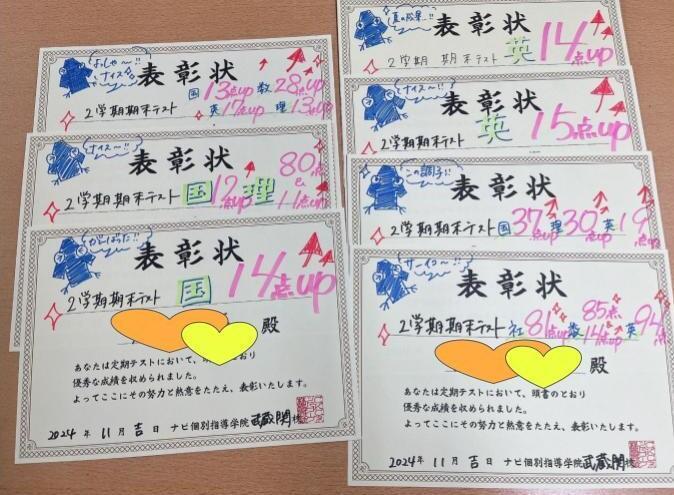 よっしゃ〜!!
ナイスゥ
表彰状
国13点up 数28点up
2学期期末テスト 英17点up 理13点up
ナイス〜!!
表彰状
80点
2学期期末テスト 国12点up 理 11点up
がんばった!!
表彰状
2学期期末テスト 国14点up
殿
あなたは定期テストにおいて、
優秀な成績を収められました。
よってここにその努力と熱意をたたえ、表彰いたします。
2024年11月吉日 ナビ個別指導学院 武蔵関校
表彰状
2学期 期末テスト 英14点up
ナイス〜!!
表彰状
2学期期末テスト 英15点up
この調子!!
表彰状
2学期期末テスト 国37点up 理30点up 英19点up
サイコ〜!!
表彰状
85点
2学期期末テスト 社81点 数 14点up 英94点
殿
あなたは定期テストにおいて、頭書のとおり
優秀な成績を収められました。
よってここにその努力と熱意をたたえ、表彰いたします。
2024年11月吉日 ナビ個別指導学院 武蔵関校